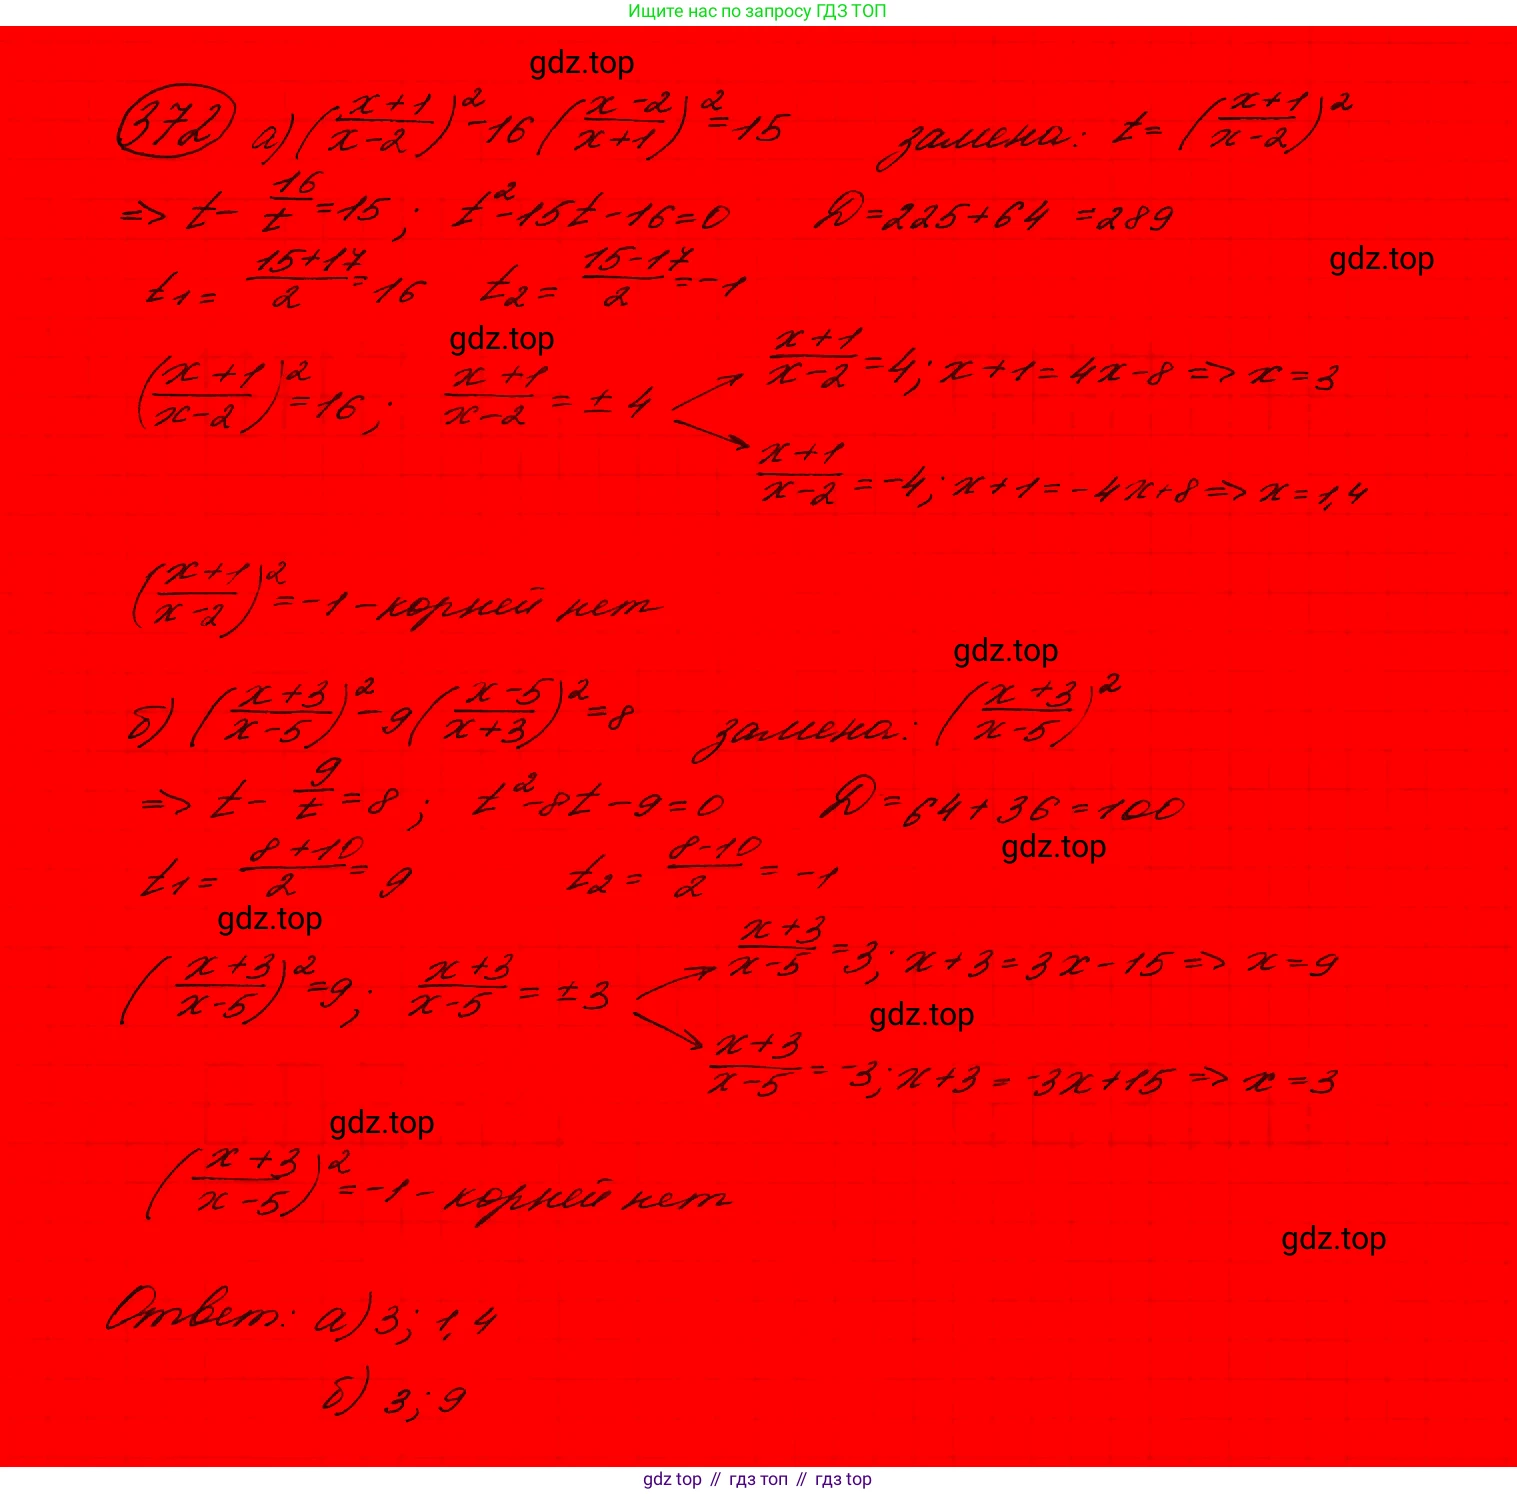 Ищите нас по запросу ГДЗ ТОП
gdz.top
372 а) ((x+1)/(x-2))² - 16((x-2)/(x+1))² = 15 замена: t = ((x+1)/(x-2))²
=> t - 16/t = 15; t² - 15t - 16 = 0 D = 225 + 64 = 289
gdz.top
t₁ = (15+17)/2 = 16 t₂ = (15-17)/2 = -1
gdz.top
((x+1)/(x-2))² = 16; (x+1)/(x-2) = ± 4
(x+1)/(x-2) = 4; x+1 = 4x-8 => x = 3
(x+1)/(x-2) = -4; x+1 = -4x+8 => x = 1,4
((x+1)/(x-2))² = -1 - корней нет
gdz.top
б) ((x+3)/(x-5))² - 9((x-5)/(x+3))² = 8 замена: ((x+3)/(x-5))²
=> t - 9/t = 8; t² - 8t - 9 = 0 D = 64 + 36 = 100
gdz.top
t₁ = (8+10)/2 = 9 t₂ = (8-10)/2 = -1
gdz.top
((x+3)/(x-5))² = 9; (x+3)/(x-5) = ± 3
(x+3)/(x-5) = 3; x+3 = 3x-15 => x = 9
gdz.top
(x+3)/(x-5) = -3; x+3 = -3x+15 => x = 3
gdz.top
((x+3)/(x-5))² = -1 - корней нет
gdz.top
Ответ: а) 3; 1,4
б) 3; 9
gdz top // гдз топ // гдз top